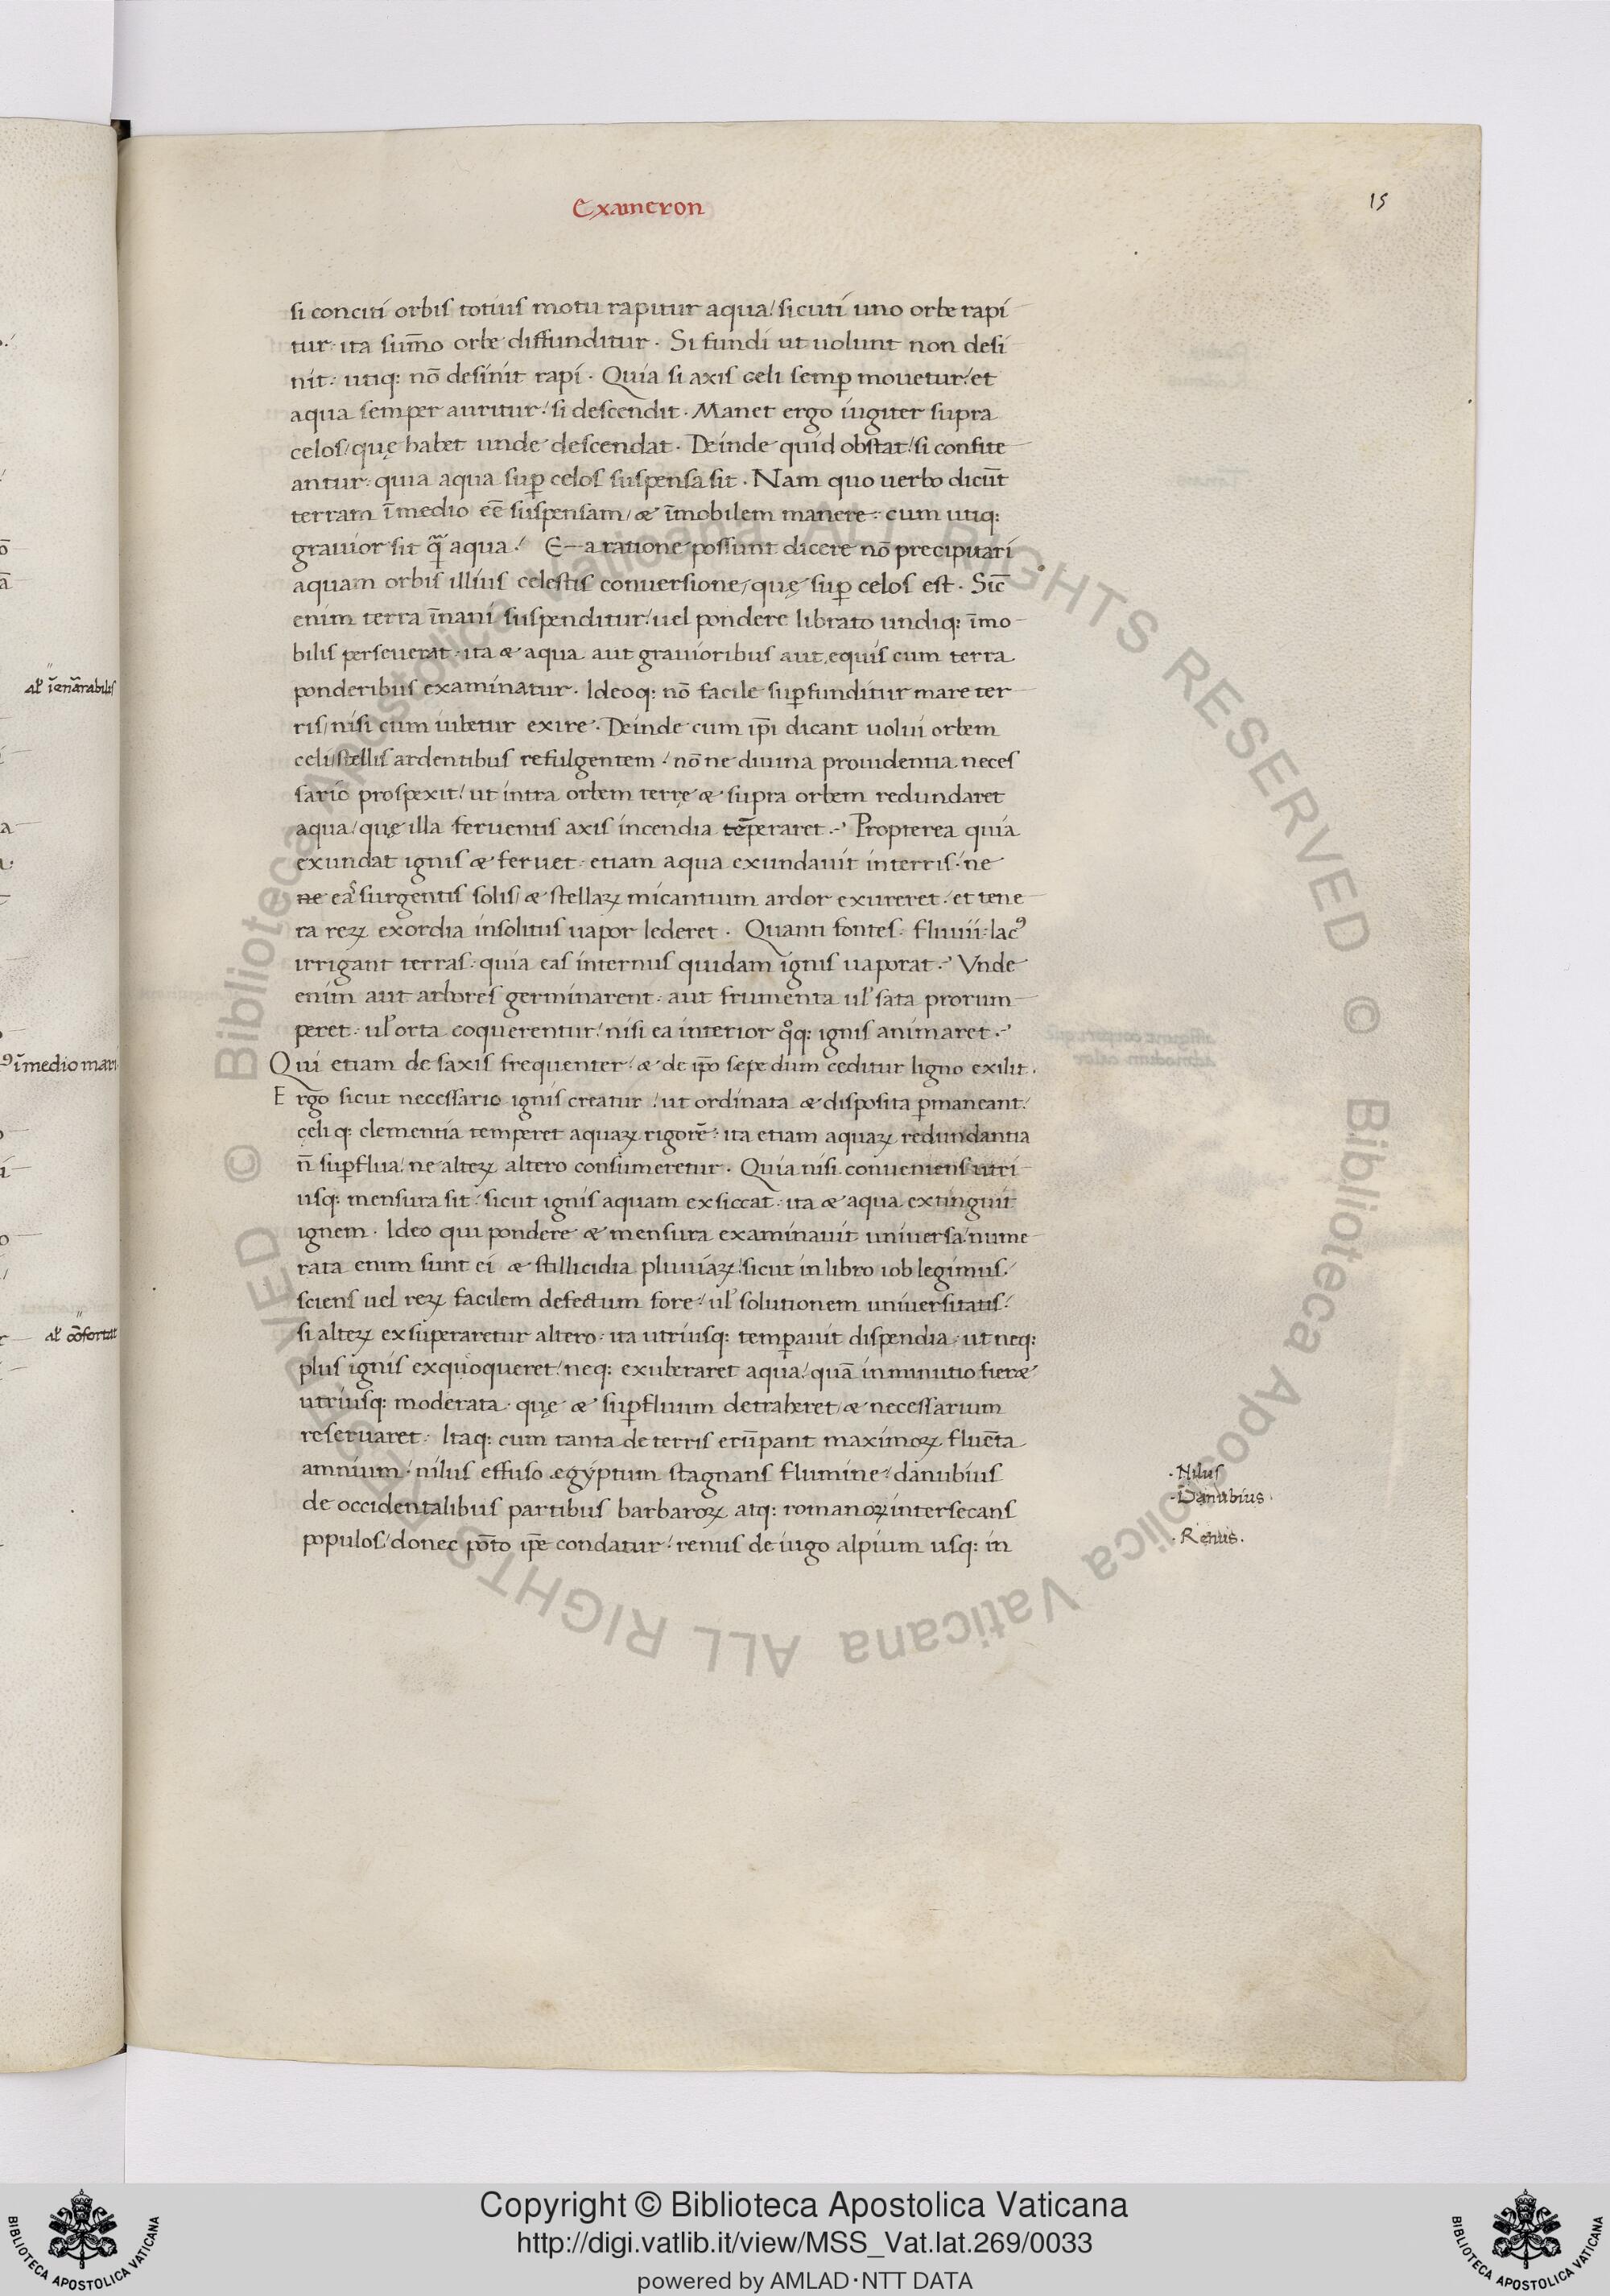 Exameron
15
si conciti orbis totius motu rapitur aqua/ sicuti uno orbe rapi
tur· ita sum̄o orbe diffunditur. Si fundi ut uolunt non desi
nit: utiq: nō desinit rapi. Quia si axis celi semp̲ mouetur/ et
aqua semper auritur/ si descendit. Manet ergo iugiter supra
celos/ quę habet unde descendat. Deinde quid obstat/ si confite
antur: quia aqua sup̲ celos suspensa sit. Nam quo uerbo dicūt
terram ī medio eē suspensam/ & īmobilem manere: cum utiq:
grauior sit q̄ aqua/ E—a ratione possunt dicere nō precipitari
aquam orbis illius celestis conuersione/ quę sup̲ celos est. Sic̄
enim terra īnani suspenditur/ uel pondere librato undiq: īmo
bilis perseuerat· ita & aqua aut grauioribus aut equis cum terra
ponderibus examinatur. Ideoq: nō facile sup̲funditur mare ter
ris/ nisi cum iubetur exire. Deinde cum ip̄i dicant uolui orbem
celi/ stellis ardentibus refulgentem/ nō ne diuina prouidentia neces
sario prospexit/ ut intra orbem terrę & supra orbem redundaret
aqua/ quę illa feruentis axis incendia tēperaret. Propterea quia
exundat ignis & feruet: etiam aqua exundauit interris· ne
ne eas surgentis solis/ & stellaꝝ micantium ardor exureret/ et tene
ra reꝝ exordia insolitus uapor lederet. Quanti fontes· fluuii· lacꝰ
irrigant terras· quia eas internus quidam ignis uaporat. Vnde
enim aut arbores germinarent· aut frumenta ul̓ sata prorum
peret· ul̓ orta coquerentur/ nisi ea interior q̊q: ignis animaret.
Qui etiam de saxis frequenter/ & de ip̄o sepe dum ceditur ligno exilit.
Ergo sicut necessario ignis creatur/ ut ordinata & disposita p̲maneant/
celiq: clementia temperet aquaꝝ rigorē: ita etiam aquaꝝ redundantia
n̄ sup̲flua/ ne alteꝝ altero consumeretur. Quia nisi conueniens utri
usq: mensura sit/ sicut ignis aquam exsiccat· ita & aqua extinguit
ignem. Ideo qui pondere & mensura examinauit uniuersa/ nume
rata enim sunt ei & stillicidia pluuiaꝝ/ sicut in libro iob legimus/
sciens uel reꝝ facilem defectum fore/ ul̓ solutionem uniuersitatis/
si alteꝝ exsuperaretur altero· ita utriusq: temp̲auit dispendia· ut neq:
plus ignis exquoqueret/ neq: exuberaret aqua/ quā inminutio fier&
utriusq: moderata· quę & sup̲fluum detraheret/ & necessarium
reseruaret. Itaq: cum tanta de terris erūpant maximoꝝ fluēta
amnium/ nilus effuso ægyptum stagnans flumine/ danubius
de occidentalibus partibus barbaroꝝ atq: romanoꝝ intersecans
populos/ donec pōto ip̄e condatur/ renus de iugo alpium usq: in
·Nilus
·Danubius·
·Renus.
al̓ īenārrabilis
ī medio mari
al̓ cōfortat
Copyright © Biblioteca Apostolica Vaticana
http://digi.vatlib.it/view/MSS_Vat.lat.269/0033
powered by AMLAD·NTT DATA
BIBLIOTECA APOSTOLICA VATICANA
BIBLIOTECA APOSTOLICA VATICANA
© Biblioteca Apostolica Vaticana ALL RIGHTS RESERVED © Biblioteca Apostolica Vaticana ALL RIGHTS RESERVED